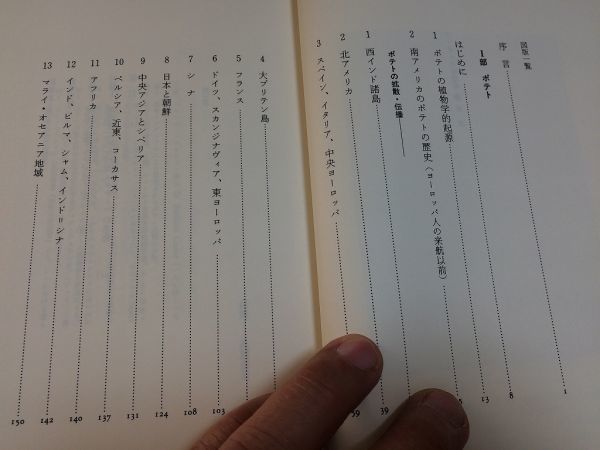 図版一覧 1
序言 8
Ⅰ部 ポテト
はじめに 13
1 ポテトの植物学的起源
2 南アメリカのポテトの歴史(ヨーロッパ人の来航以前)
ポテトの拡散・伝播
1 西インド諸島 39
2 北アメリカ
3 スペイン、イタリア、中央ヨーロッパ
4 大ブリテン島
5 フランス
6 ドイツ、スカンジナヴィア、東ヨーロッパ 103
7 シナ 108
8 日本と朝鮮 124
9 中央アジアとシベリア 131
10 ペルシア、近東、コーカサス 137
11 アフリカ 140
12 インド、ビルマ、シャム、インドシナ 142
13 マライ・オセアニア地域 150